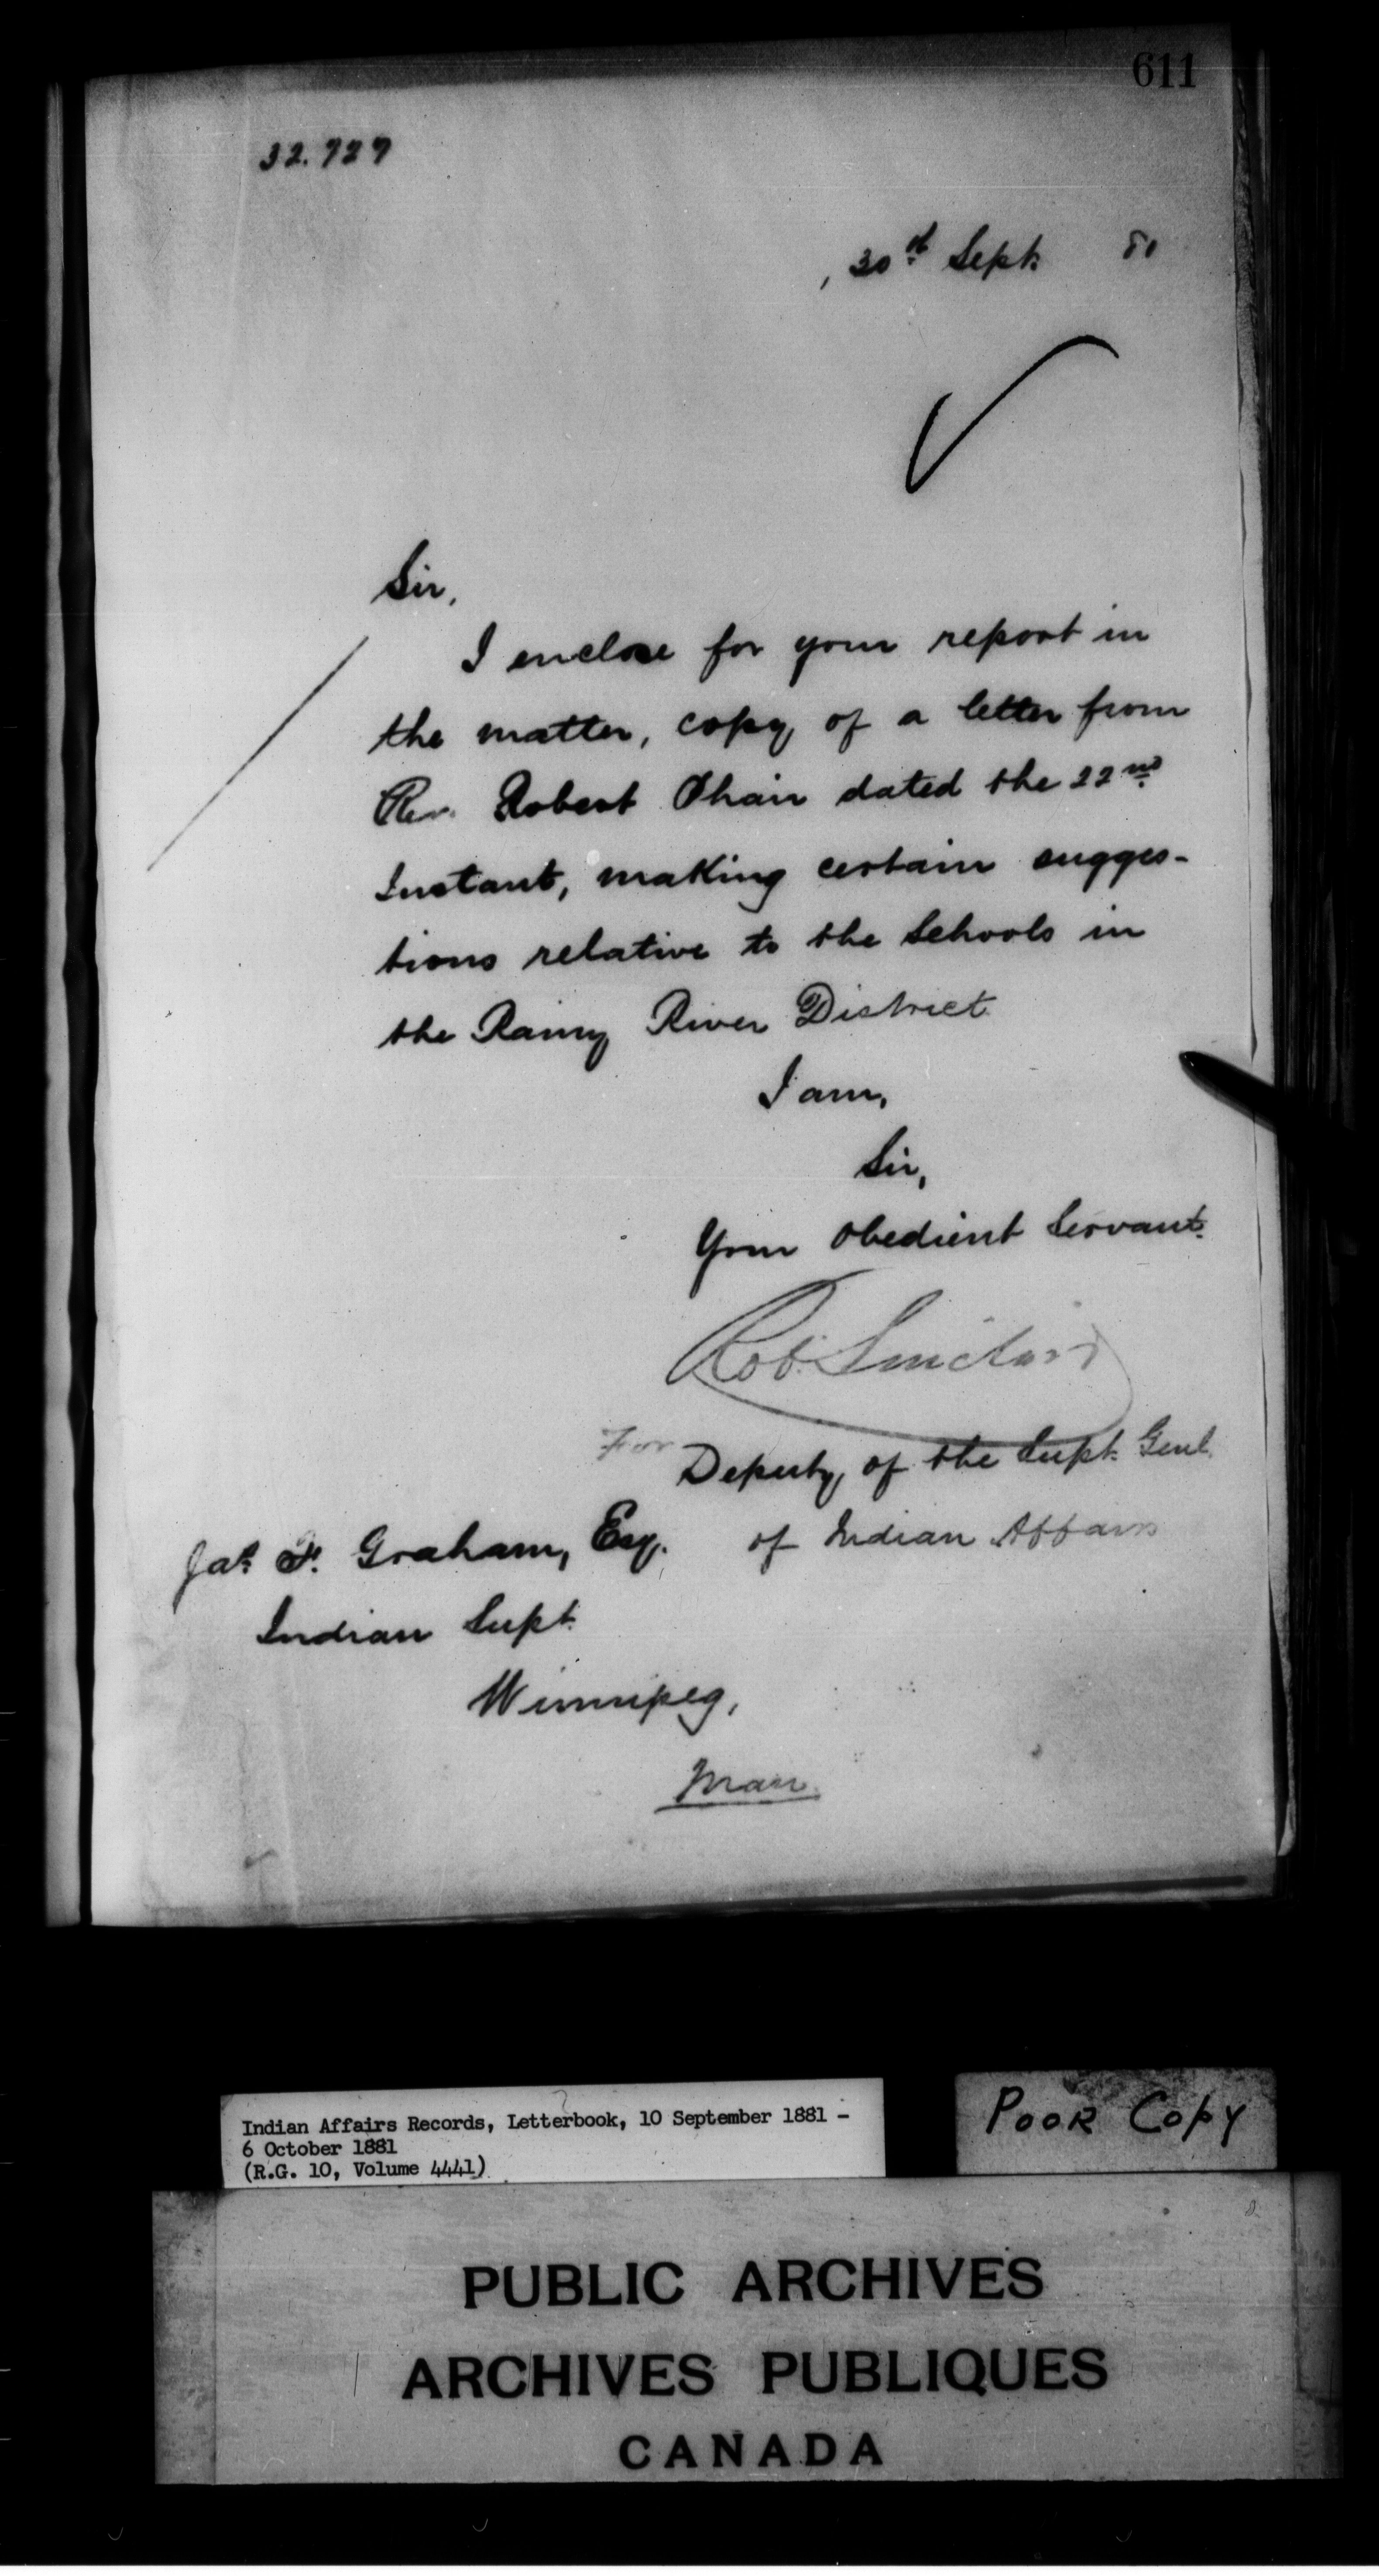 611
32.727
, 30th Sept. 81
Sir,
I enclose for your report in
the matter, copy of a letter from
Rev. Robert Phair dated the 22nd
Instant, making certain sugges-
tions relative to the Schools in
the Rainy River District
I am,
Sir,
Your Obedient Servant.
Rob. Sinclair
For Deputy of the Supt. Genl.
of Indian Affairs
Jas. F. Graham, Esq.
Indian Supt.
Winnipeg,
Man.
Indian Affairs Records, Letterbook, 10 September 1881 -
6 October 1881
(R.G. 10, Volume 4441)
POOR COPY
PUBLIC ARCHIVES
ARCHIVES PUBLIQUES
CANADA